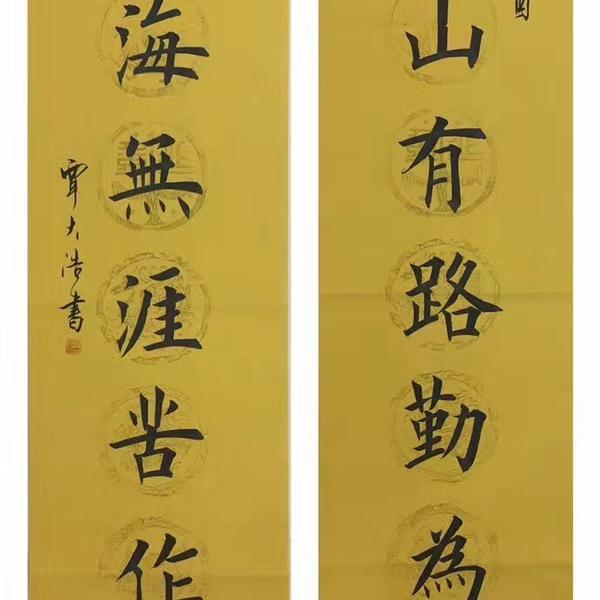 山有路勤為
海無涯苦作
覃大浩書